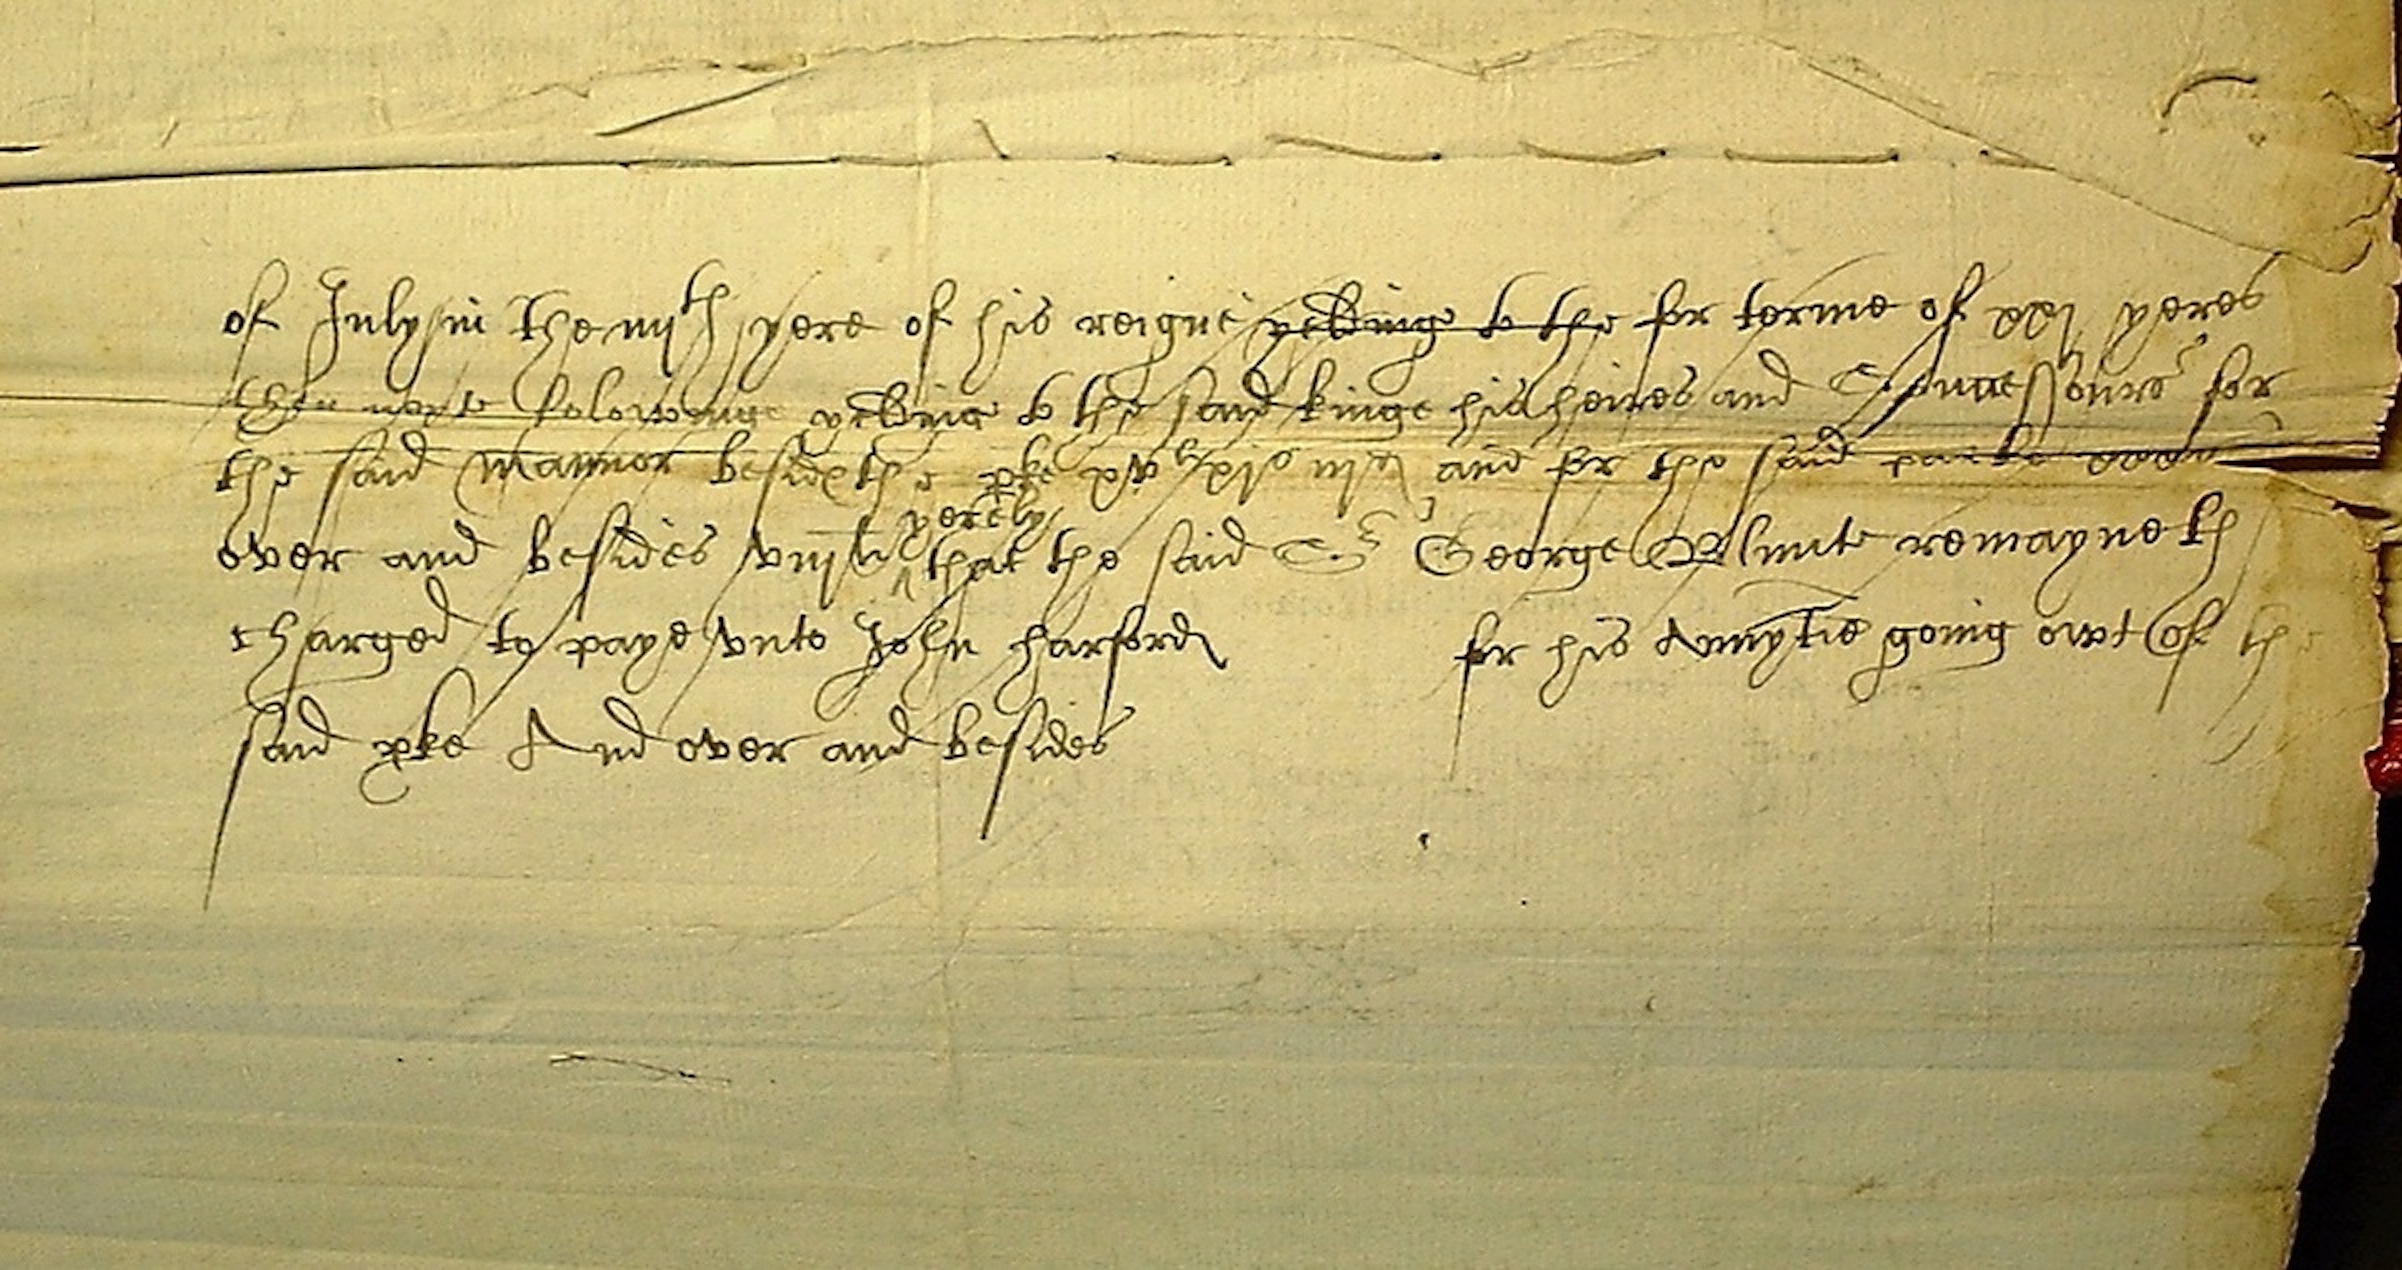 of July in the iiijth yere of his reigne yelding to the for terme of xxj yeres
then next folowinge yelding to the said kinge his heires and Successours for
the said mannor besides the pke xvli xjs iiijd and for the said parke
over and besides viijli yerely that the said Sr George Blunte remayneth
charged to paye vnto John harford for his Annytie going owt of the
said pke And over and besides